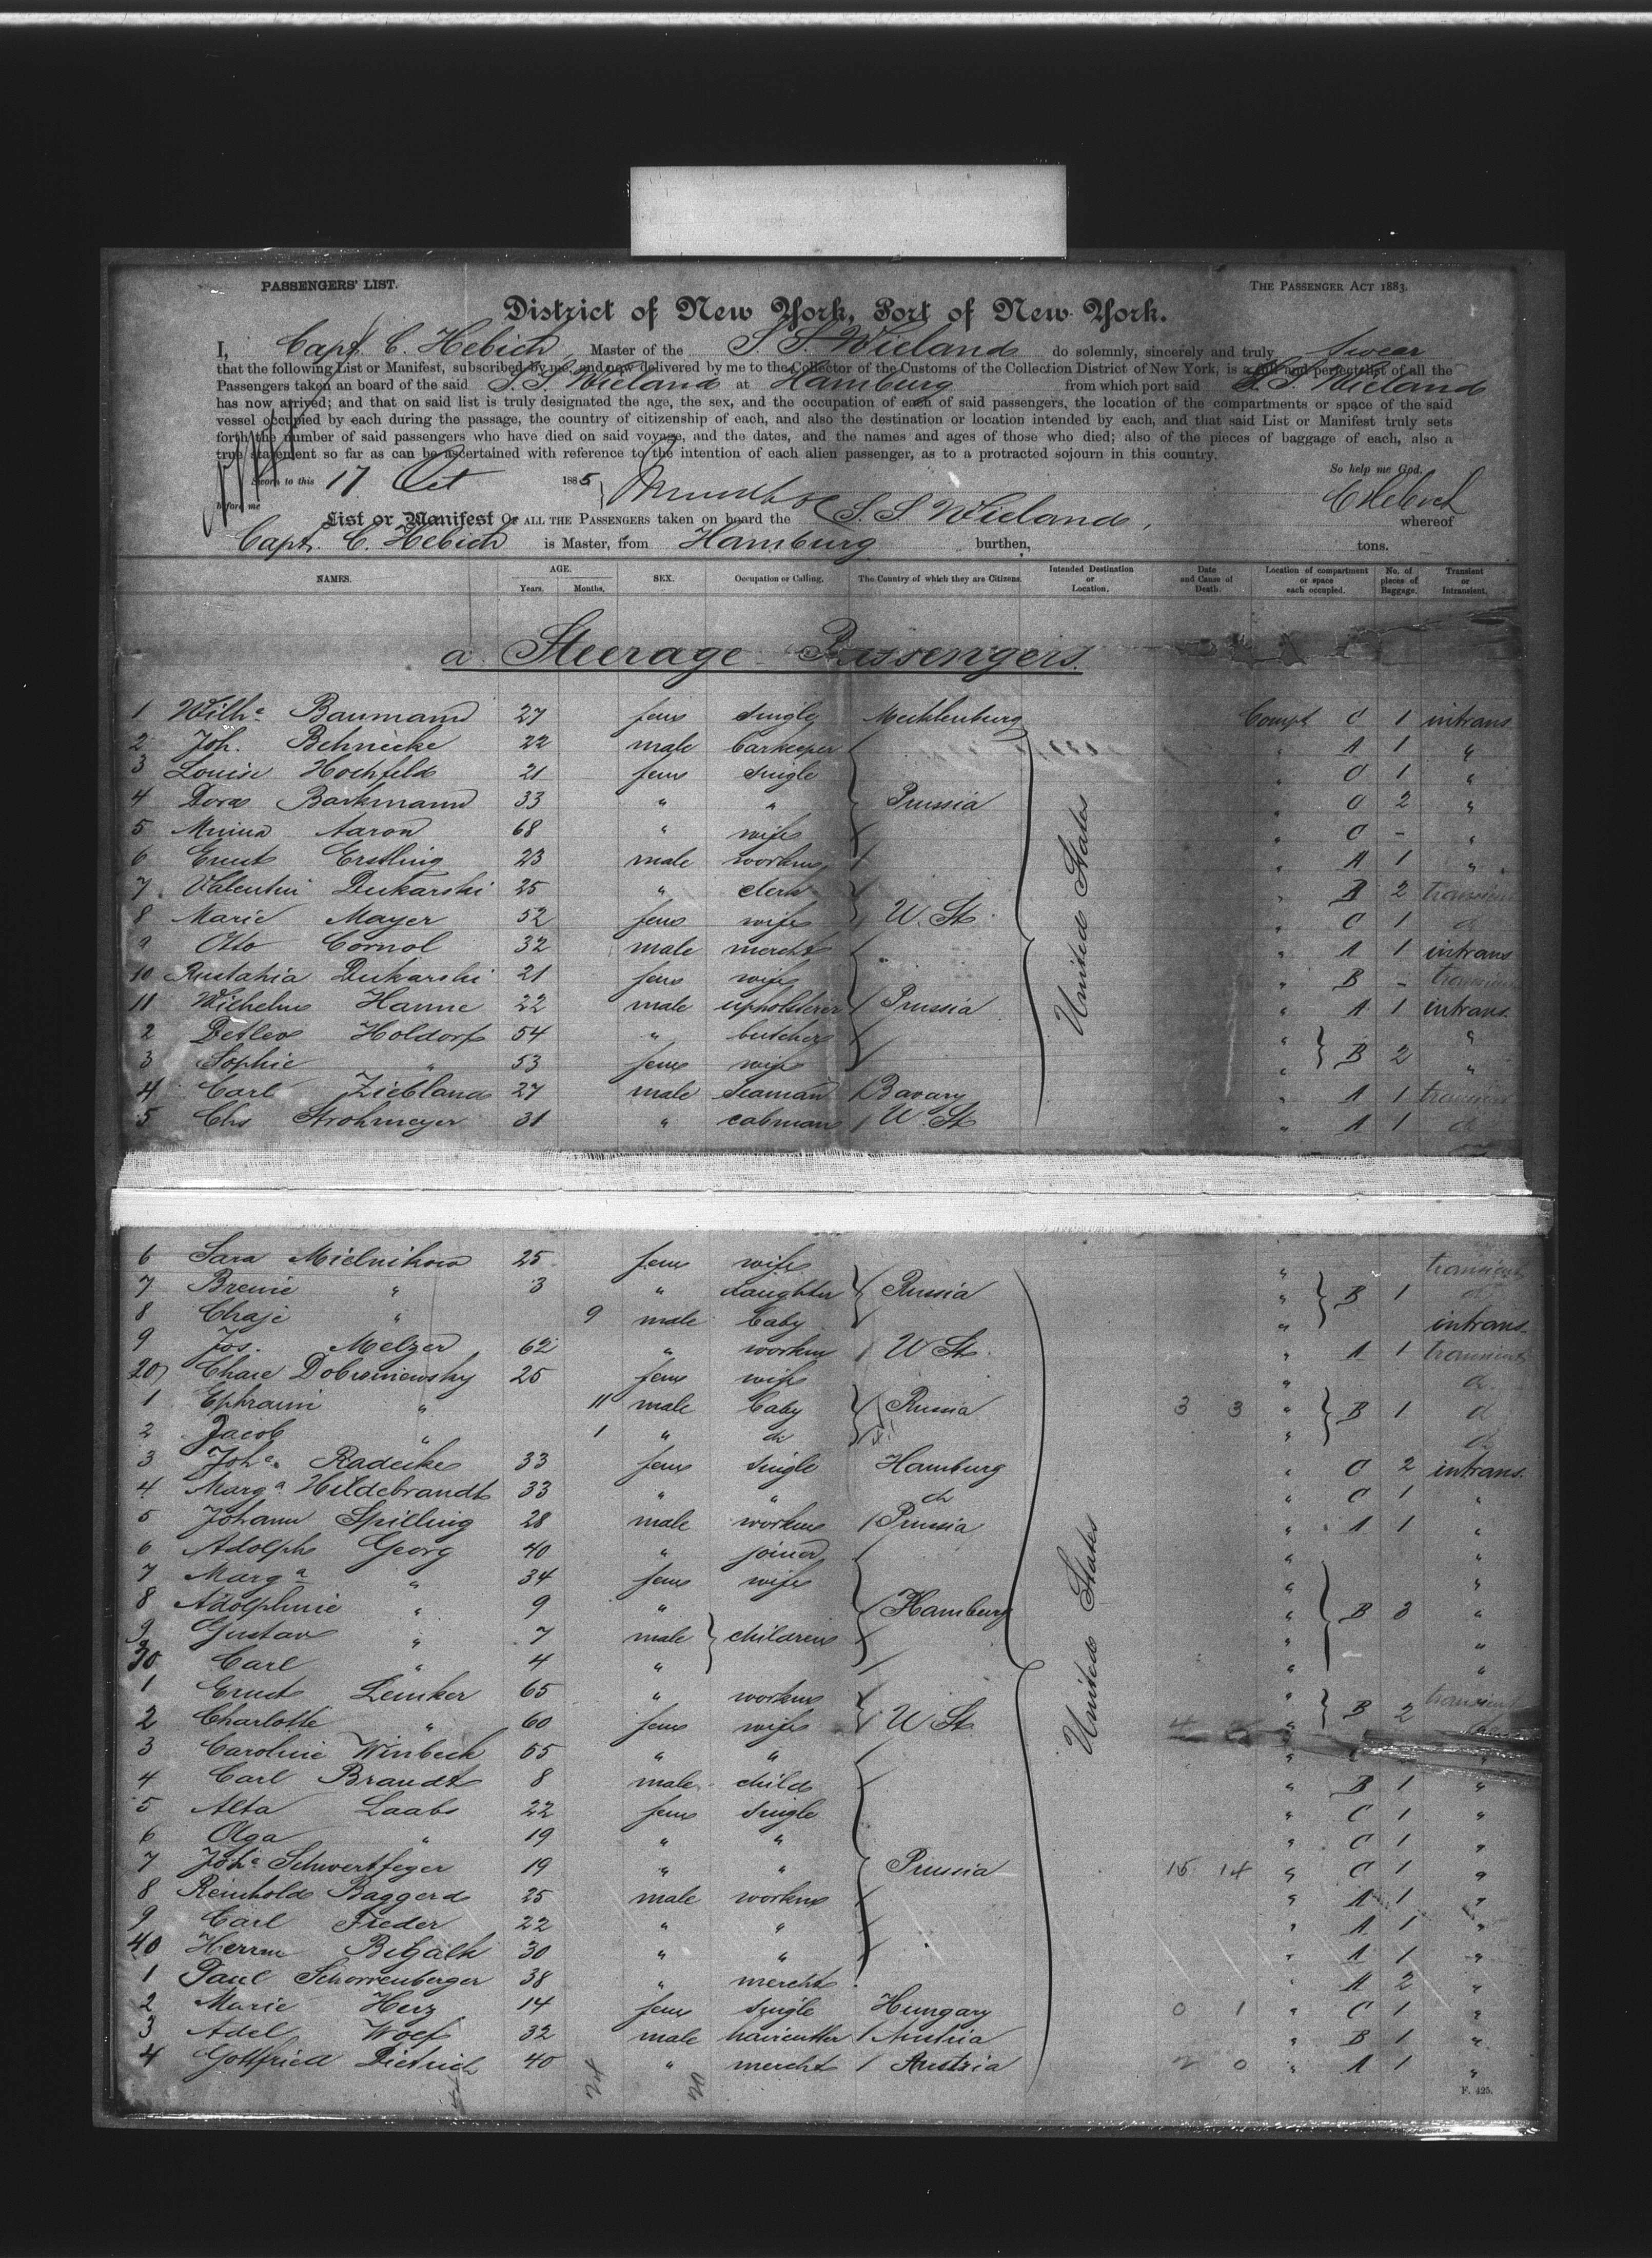 PASSENGERS' LIST.
THE PASSENGER ACT 1883.
District of New York, Port of New York.
I, Capt. C. Hebich, Master of the S. S. Wieland do solemnly, sincerely and truly swear
that the following List or Manifest, subscribed by me, and now delivered by me to the Collector of the Customs of the Collection District of New York, is a full and perfect list of all the
Passengers taken an board of the said S. S. Wieland at Hamburg from which port said S. S. Wieland
has now arrived; and that on said list is truly designated the age, the sex, and the occupation of each of said passengers, the location of the compartments or space of the said
vessel occupied by each during the passage, the country of citizenship of each, and also the destination or location intended by each, and that said List or Manifest truly sets
forth the number of said passengers who have died on said voyage, and the dates, and the names and ages of those who died; also of the pieces of baggage of each, also a
true statement so far as can be ascertained with reference to the intention of each alien passenger, as to a protracted sojourn in this country.
So help me God.
Sworn to this 17 Oct 1885
before me
C Hebich
List or Manifest OF ALL THE PASSENGERS taken on board the S. S. Wieland, whereof
Capt. C. Hebich is Master, from Hamburg burthen, tons.
NAMES. AGE. Years. Months. SEX. Occupation or Calling. The Country of which they are Citizens. Intended Destination or Location. Date and Cause of Death. Location of compartment or space each occupied. No. of pieces of Baggage. Transient or Intransient.
a. Steerage Passengers.
1 Wilhe Baumann 27 fem single Mecklenburg Compt C 1 intrans
2 Joh. Behnicke 22 male barkeeper " A 1 "
3 Louise Hochfeld 21 fem single " C 1 "
4 Dora Barkmann 33 " " Prussia " C 2 "
5 Minna Aaron 68 " wife " C - "
6 Ernst Erstling 23 male workm " A 1 "
7 Valentin Dukarski 25 " clerk " B 2 transient
8 Marie Mayer 52 fem wife U. St. " C 1 d
9 Otto Cornol 32 male mercht " A 1 intrans
10 Dukarski 21 fem wife " B - transient
11 Wilhelm Hanne 22 male upholsterer Prussia " A 1 intrans.
2 Detlev Holdorf 54 " butcher " B 2 "
3 Sophie " 53 fem wife " "
4 Carl Ziebland 27 male seaman Bavary " A 1 transient
5 Chs Strohmeyer 31 " cabman U. St. " A 1 d
United States
6 Sara Mielnikow 25 fem wife " transient
7 Breine " 3 " daughter Russia " B 1 d
8 Chaje " 9 male baby " intrans.
9 Jos. Melzer 62 " workm U St. " A 1 transient
20 Chaie Dobrsniewsky 25 fem wife " d
1 Ephraim " 11 male baby Russia 3 3 " B 1 d
2 Jacob " 1 " do " d
3 Johe. Radecke 33 fem single Hamburg " C 2 intrans.
4 Marga Hildebrandt 33 " " do " C 1 "
5 Johann Spieling 28 male workm Prussia " A 1 "
6 Adolph Georg 40 " joiner " "
7 Marga " 34 fem wife " "
8 Adolphine " 9 " Hamburg " B 3 "
9 Gustav " 7 male children " "
30 Carl " 4 " " "
1 Ernst Lemker 65 " workm " transient
2 Charlotte " 60 fem wife U St. " B 2
3 Caroline Winbeck 55 " " "
4 Carl Brandt 8 male child " B 1 "
5 Alta Laabs 22 fem single " C 1 "
6 Olga " 19 " " " C 1 "
7 Johe Schwertfeger 19 " " Prussia 15 14 " C 1 "
8 Reinhold Baggerd 25 male workm " A 1 "
9 Carl Freder 22 " " " A 1 "
40 Herrm Bigalk 30 " " " A 1 "
1 Paul Schorrenberger 38 " mercht " A 2 "
2 Marie Herz 14 fem single Hungary 0 1 " C 1 "
3 Adel Wolf 32 male haircutter Austria " B 1 "
4 Gottfried Dietrich 40 " mercht Austria 2 0 " A 1 "
United States
24 20
F. 425.